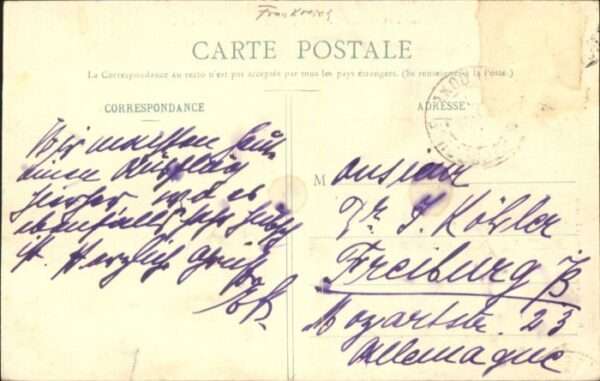 Frankreich
CARTE POSTALE
La Correspondance au recto n'est pas acceptée par tous les pays étrangers. (Se renseigner à la Poste.)
CORRESPONDANCE
ADRESSE
Wir machten heute
einen Ausflug
hierher wo es
ebenfalls sehr hübsch
ist. Herzlich Gruß
M onsieur
J. Köhler
Freiburg i/B
Mozartstr. 23
Allemagne